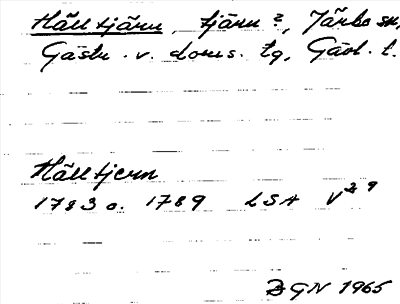 Hälltjärn, tjärn?, Järbo sn,
Gästr. v. doms. tg, Gävl. l.
Hälltjern
1783 o. 1789 LSA V 9
GN 1965